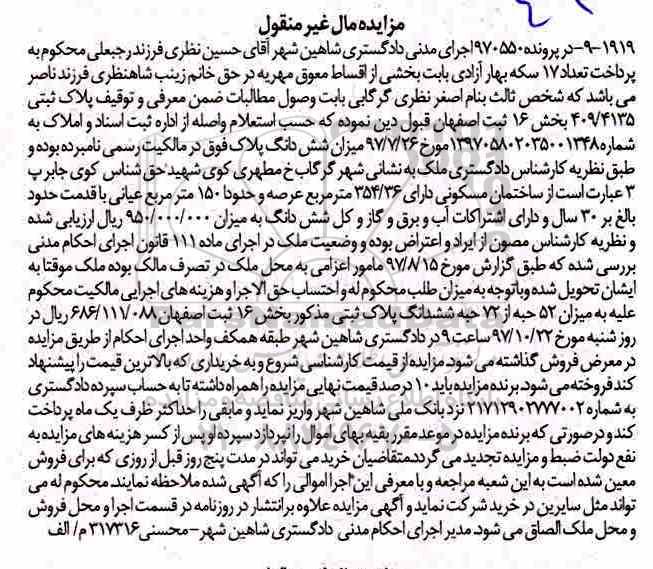 مزایده مال غیر منقول
۱۹۱۹-۹-در پرونده ۹۷۰۵۵۰ اجرای مدنی دادگستری شاهین شهر آقای حسین نظری فرزند رجبعلی محکوم به
پرداخت تعداد ۱۷ سکه بهار آزادی بابت بخشی از اقساط معوق مهریه در حق خانم زینب شاهنظری فرزند ناصر
می باشد که شخص ثالث بنام اصغر نظری گرگابی بابت وصول مطالبات ضمن معرفی و توقیف پلاک ثبتی
۴۰۹/۴۱۳۵ بخش ۱۶ ثبت اصفهان قبول دین نموده که حسب استعلام واصله از اداره ثبت اسناد و املاک به
شماره ۱۳۹۷۰۵۸۰۲۰۳۵۰۰۱۳۴۸ مورخ ۹۷/۷/۲۶ میزان شش دانگ پلاک فوق در مالکیت رسمی نامبرده بوده و
طبق نظریه کارشناس دادگستری ملک به نشانی شهر گرگاب خ مطهری کوی شهید حق شناس کوی جابر پ
۳ عبارت است از ساختمان مسکونی دارای ۳۵۴/۳۶ متر مربع عرصه و حدودا ۱۵۰ متر مربع عیانی با قدمت حدود
بالغ بر ۳۰ سال و دارای اشتراکات آب و برق و گاز و کل شش دانگ به میزان ۹۵۰/۰۰۰/۰۰۰ ریال ارزیابی شده
و نظریه کارشناس مصون از ایراد و اعتراض بوده و وضعیت ملک در اجرای ماده ۱۱۱ قانون اجرای احکام مدنی
بررسی شده که طبق گزارش مورخ ۹۷/۸/۱۵ مامور اعزامی به محل ملک در تصرف مالک بوده ملک موقتا به
ایشان تحویل شده وباتوجه به میزان طلب محکوم له و احتساب حق الاجرا و هزینه های اجرایی مالکیت محکوم
علیه به میزان ۵۲ حبه از ۷۲ حبه ششدانگ پلاک ثبتی مذکور بخش ۱۶ ثبت اصفهان ۶۸۶/۱۱۱/۰۸۸ ریال در
روز شنبه مورخ ۹۷/۱۰/۲۲ ساعت ۹ در دادگستری شاهین شهر طبقه همکف واحد اجرای احکام از طریق مزایده
در معرض فروش گذاشته می شود. مزایده از قیمت کارشناسی شروع و به خریداری که بالاترین قیمت را پیشنهاد
کند فروخته می شود. برنده مزایده باید ۱۰ درصد قیمت نهایی مزایده را همراه داشته تا به حساب سپرده دادگستری
به شماره ۲۱۷۱۲۹۰۲۷۷۷۰۰۲ نزد بانک ملی شاهین شهر واریز نماید و مابقی را حداکثر ظرف یک ماه پرداخت
کند و درصورتی که برنده مزایده در موعد مقرر بقیه بهای اموال را نپردازد سپرده او پس از کسر هزینه های مزایده به
نفع دولت ضبط و مزایده تجدید می گردد. متقاضیان خرید می تواند در مدت پنج روز قبل از روزی که برای فروش
معین شده است به این شعبه مراجعه و با معرفی این اجرا اموالی را که آگهی شده ملاحظه نمایند. محکوم له می
تواند مثل سایرین در خرید شرکت نماید و آگهی مزایده علاوه بر انتشار در روزنامه در قسمت اجرا و محل فروش
و محل ملک الصاق می شود. مدیر اجرای احکام مدنی دادگستری شاهین شهر-محسنی ۳۱۷۳۱۶ م/ الف